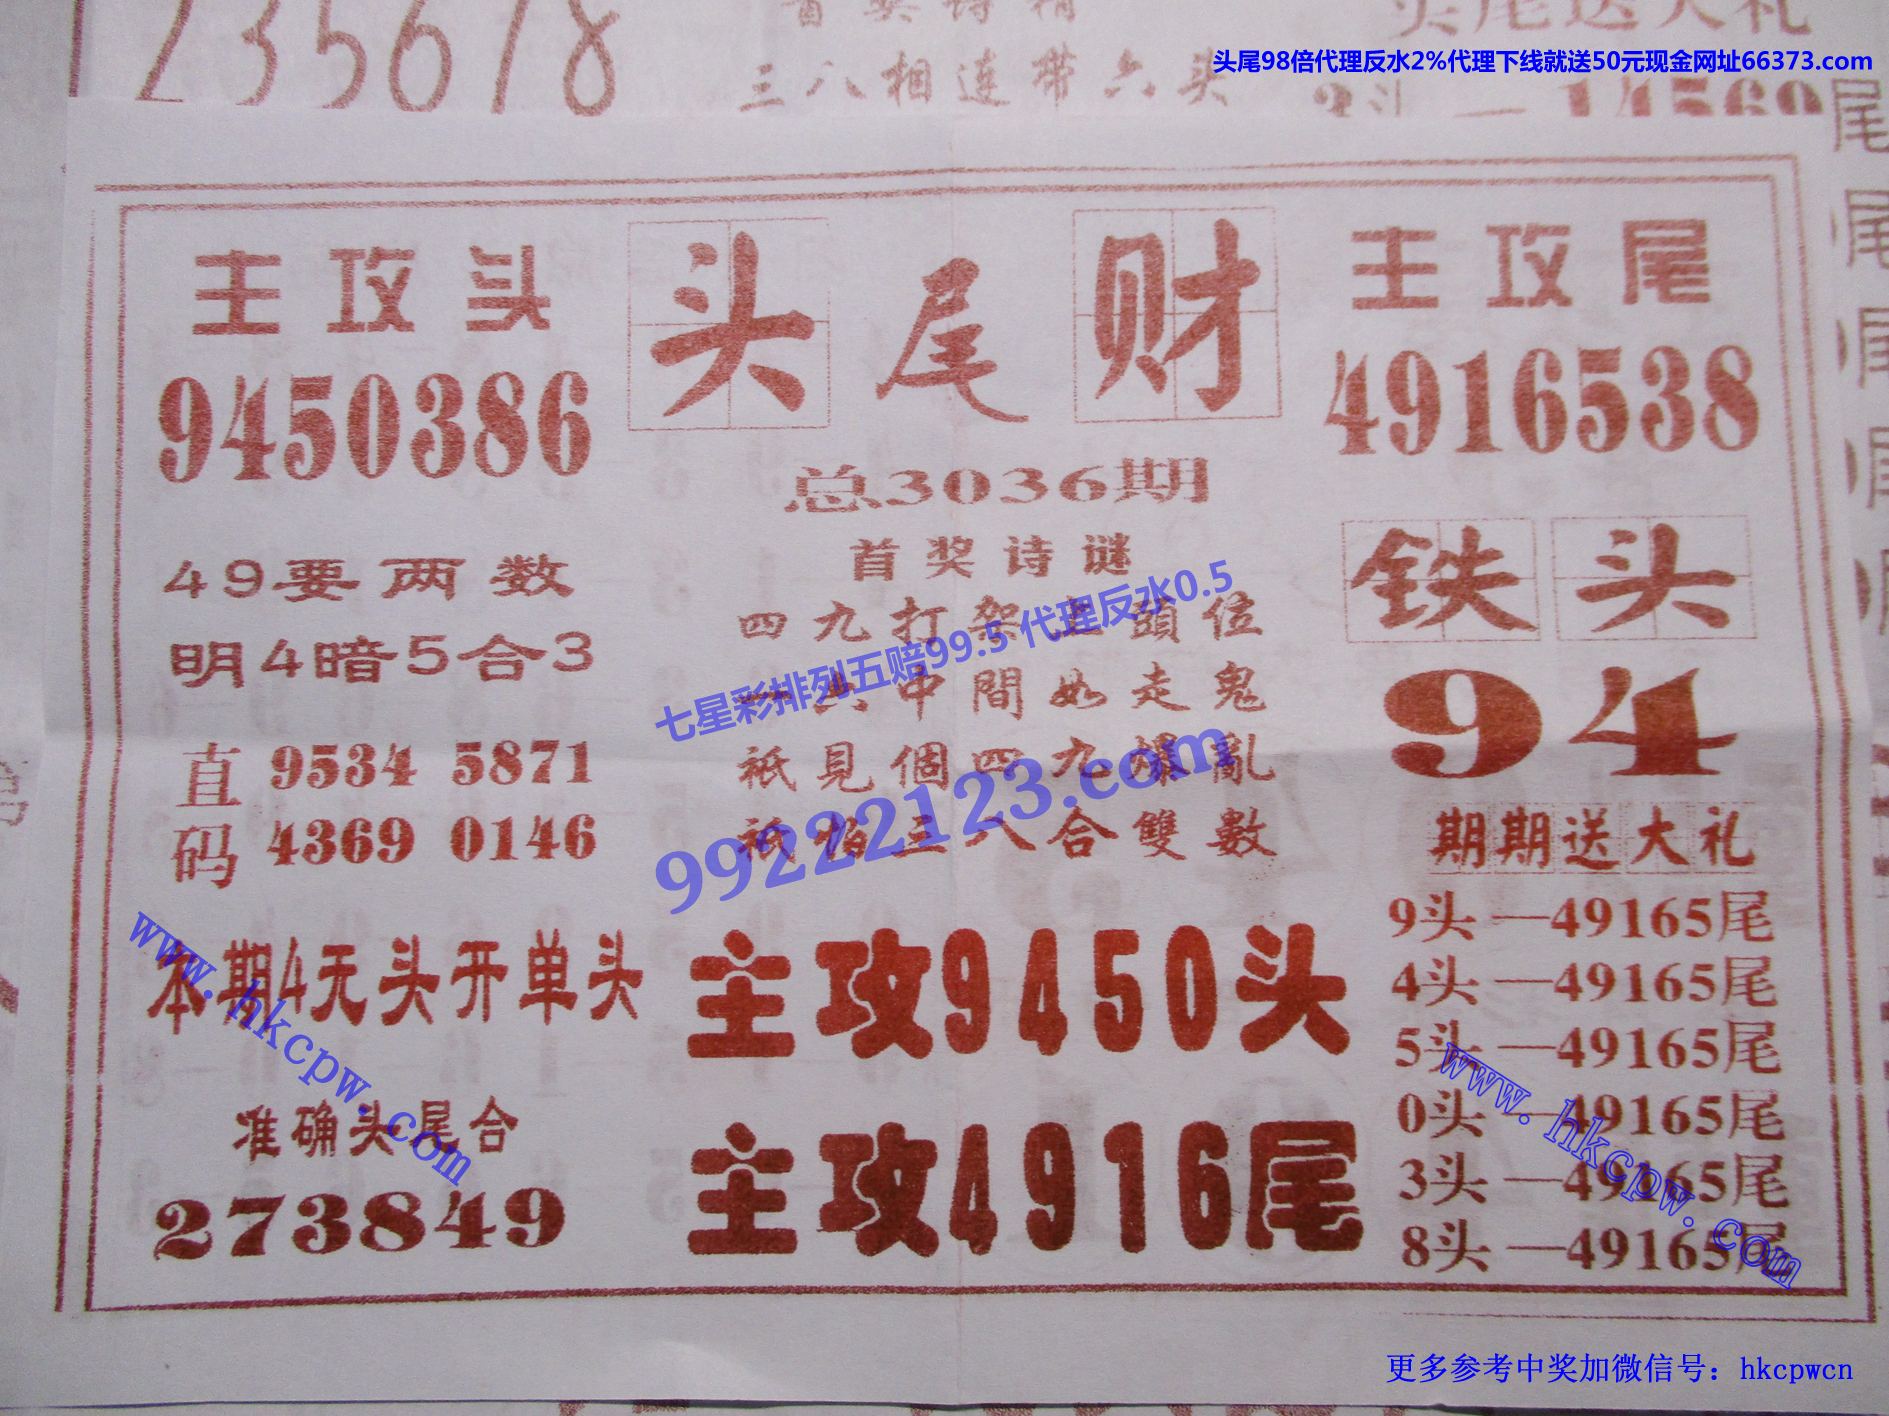 235678
三八相连带六头
头尾送大礼
头尾98倍代理反水2%代理下线就送50元现金网址66373.com
主攻头
9450386
头尾财
主攻尾
4916538
总3036期
49要两数
明4暗5合3
首奖诗谜
四九打架在頭位
一六中間如走鬼
祇見個四九爆亂
祇怕三八合雙數
七星彩排列五赔99.5 代理反水0.5
99222123.com
铁头
94
直码
9534 5871
4369 0146
期期送大礼
9头—49165尾
4头—49165尾
5头—49165尾
0头—49165尾
3头—49165尾
8头—49165尾
本期4无头开单头
主攻9450头
准确头尾合
273849
主攻4916尾
www.hkcpw.com
www.hkcpw.com
更多参考中奖加微信号：hkcpwcn